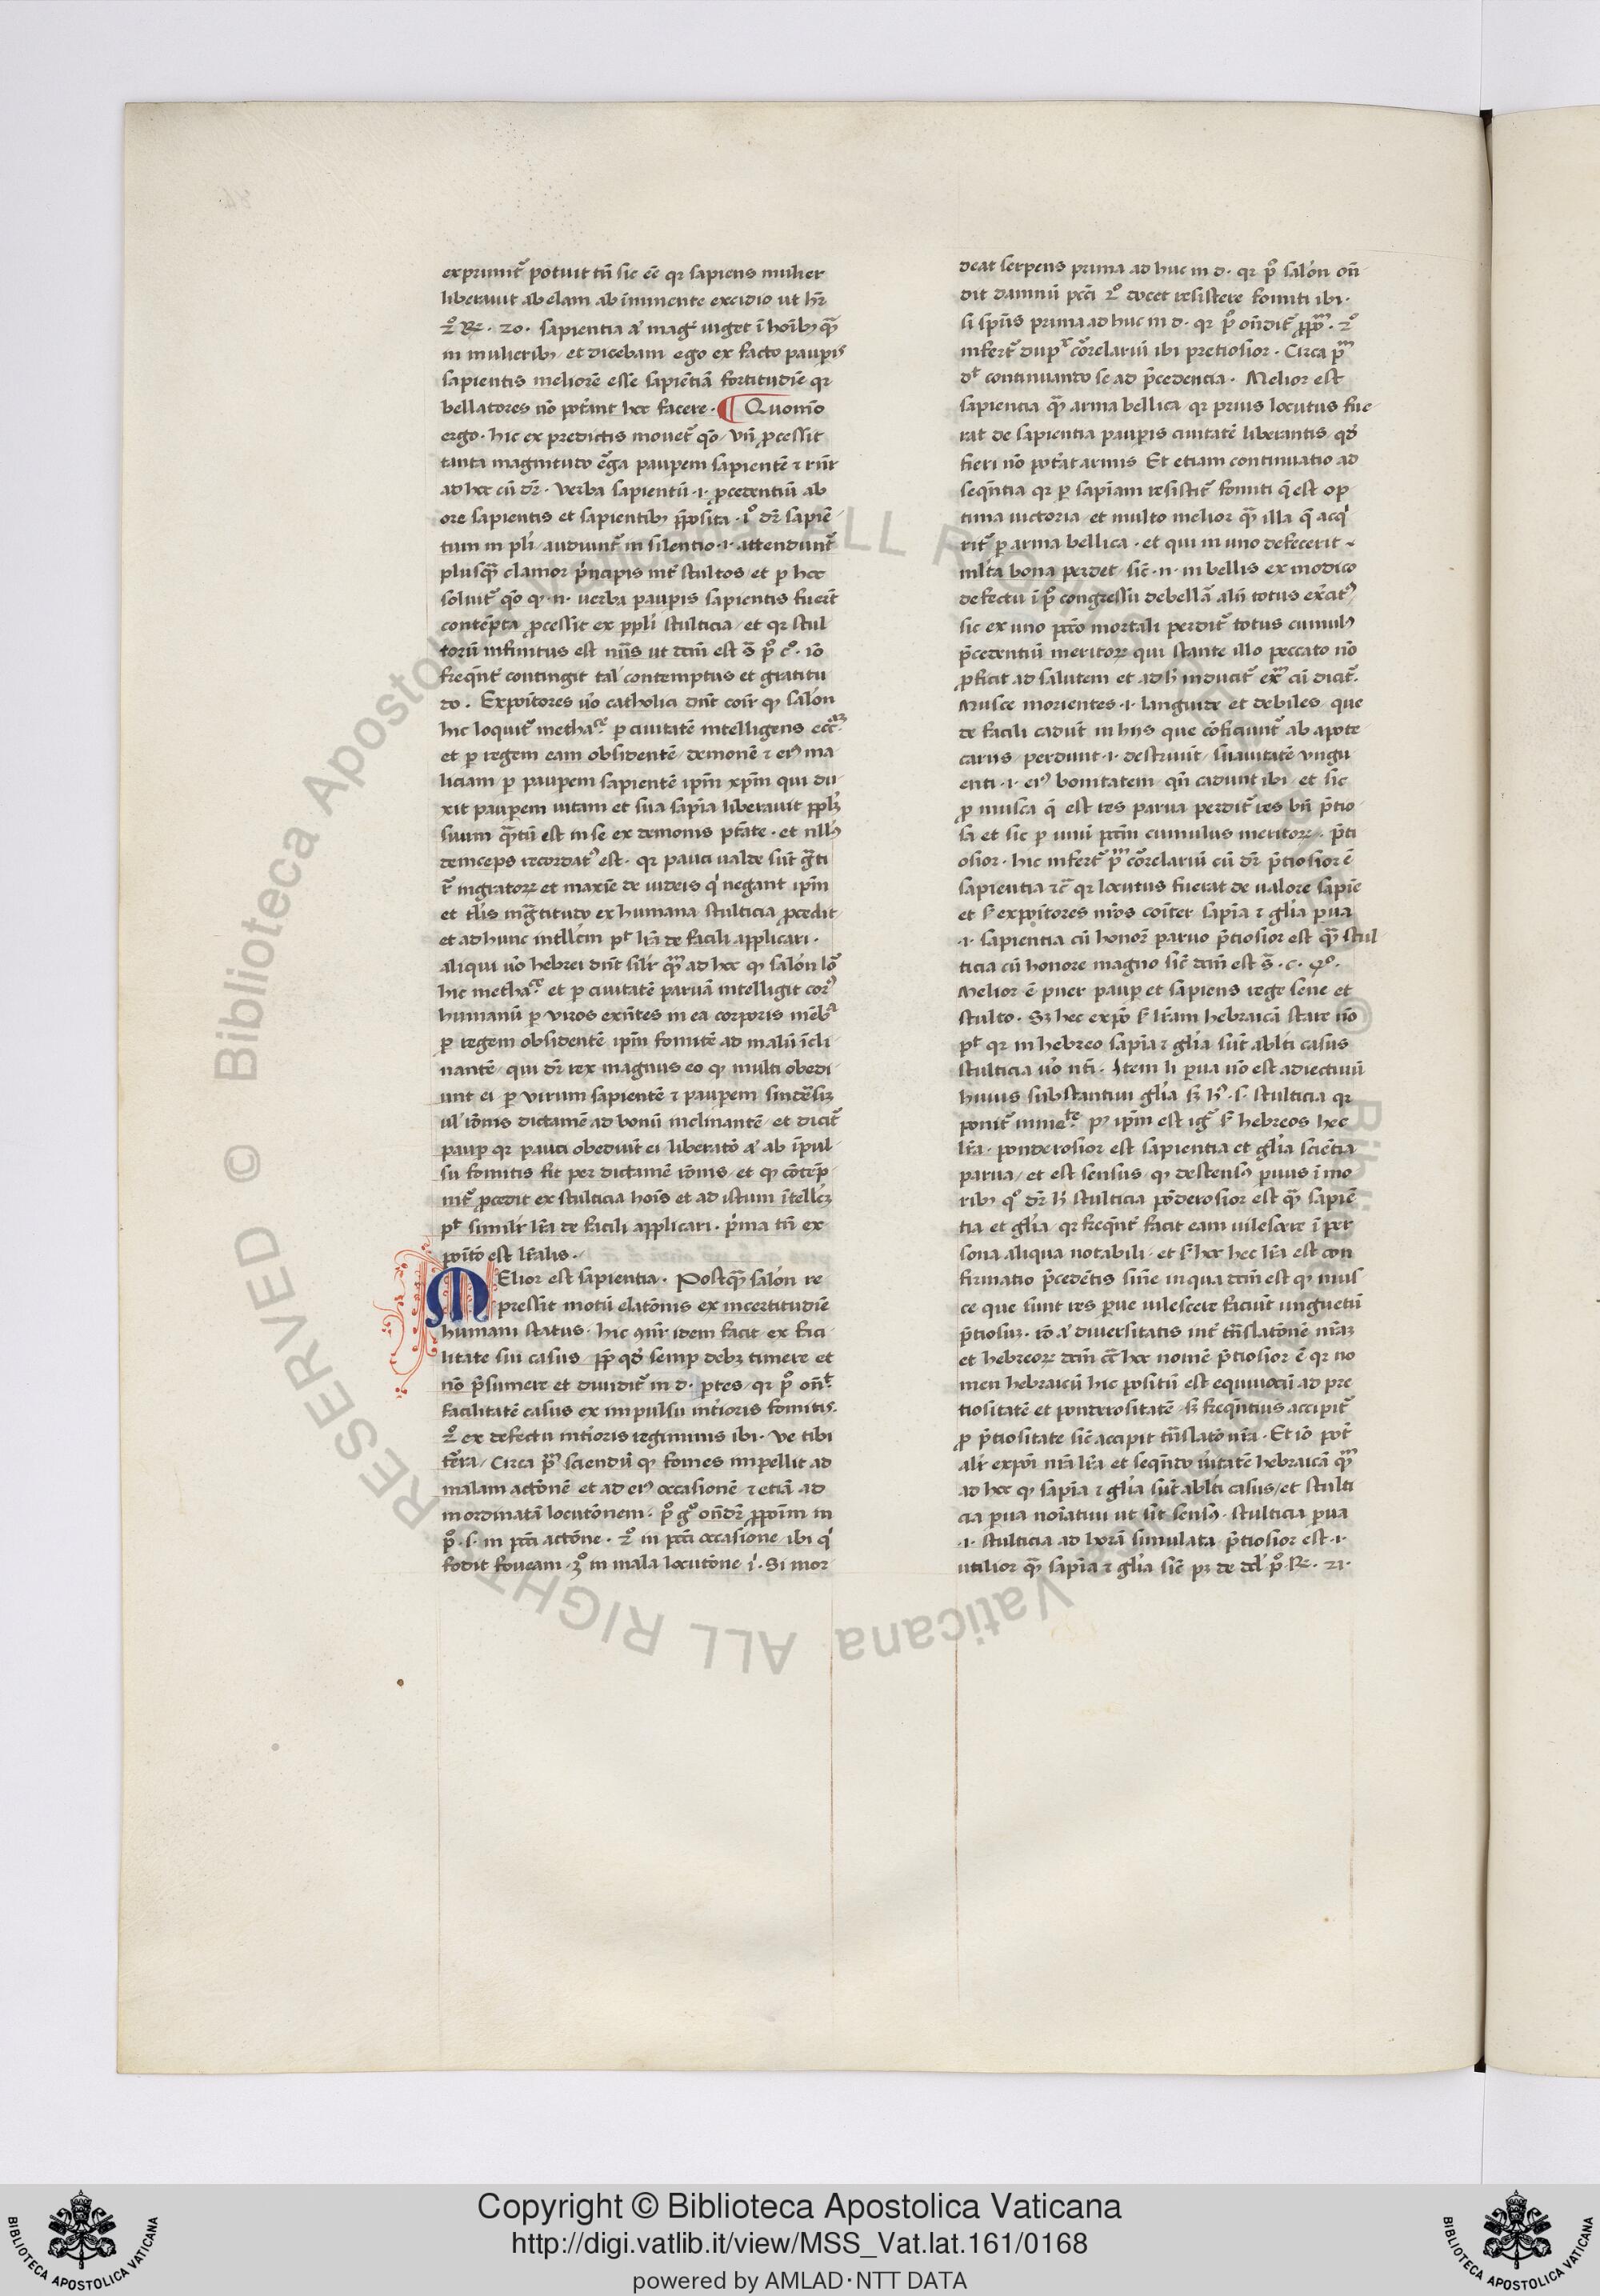 exprimit̃ potuit tñ sic eẽ qr sapiens mulier
liberauit abelam ab iminente excidio ut hr̃
2º Rͤ. 20. sapientia aͣ magͥ uiget ĩ hoĩbꝫ qͣ̃
in mulieribꝫ et dicebam ego ex facto paupis
sapientis meliorẽ esse sapiẽtiã fortitudĩe qr
bellatores nõ potãnt hec facere. ¶ Quomõ
ergo. hic ex predictis mouet̃ qõ vñ ꝓcessit
tanta magnitudo ẽga pauꝑem sapientẽ ⁊ rñr
ad hec cũ dr̃. Verba sapientũ .i. ꝓcedentiũ ab
ore sapientis et sapientibꝫ ꝓposita. iº dr̃ sapiẽ
tum in pli audiunt̃ in silentio .i. attendunt̃
plusqͣ̃ clamor pͥncipis int̃ stultos et ꝑ hoc
soluit̃ qõ ꝙ .n. uerba paupis sapientis fuerĩt
contẽpta ꝓcessit ex ppli stulticia et qr stul
torũ infinitus est nũs ut dcm̃ est s̃ pº cº. iõ
freqñt̃ contingit tal̃ contemptus et gratitu
do. Expoitores ũo catholici dñt coĩr ꝙ salõn
hic loquit̃ methaͨᵉ ꝑ ciuitatẽ intelligens ecc̃ᵃᵐ
et ꝑ regem eam obsidentẽ demonẽ ⁊ eiꝰ ma
liciam ꝑ pauꝑem sapientẽ ip̃m xp̃m qui du
xit pauꝑem uitam et sua sap̃ia liberauit pplꝫ
suum qͣ̃tũ est in se ex demonis p̃tate. et nllꝰ
deinceps recordatꝰ est. qr pauci ualde sũt gͣ̃ti
r̃ ingratoꝝ et maxĩe de iudeis qͥ negant ip̃m
et tl̃is ingͣ̃titudo ex humana stulticia ꝓcedit
et ad hunc intllẽm pͭ lr̃a de facili applicari.
aliqui ũo hebrei dñt sil̃r qͣ̃ᵐ ad hec ꝙ salõn lõ
hic methaͨᵉ et ꝑ ciuitatẽ paruã intelligit corꝰ
humanũ ꝑ viros exñtes in ea corporis mẽbͣ
ꝑ regem obsidentẽ ip̃m fomitẽ ad malũ ĩcli
nantẽ qui dr̃ rex magnus eo ꝙ multi obedi
unt ei ꝑ virum sapientẽ ⁊ pauꝑem sindẽsĩꝫ
ul̃ rõnis dictamẽ ad bonũ inclinantẽ et dicit̃
pauꝑ qr pauci obediũt ei liberatõ aͣ ab ĩpul
su fomitis fit per dictamẽ rõnis et ꝙ cõtẽp
nit̃ ꝓcedit ex stulticia hoĩs et ad istum ĩtellẽꝫ
pͭ simil̃r lr̃a de facili applicari. pͥma tñ ex
poitõ est lr̃alis.
MElior est sapientia. Postqͣ̃ salõn re
pressit motũ elatõnis ex incertitudĩe
humani status. hic ꝯñr idem facit ex faci
litate sui casus ꝓp̃ qđ semꝑ debꝫ timere et
nõ p̃sumere et diuidit̃ in d. ptes qr pº onͭ
facilitatẽ casus ex impulsu int̃ioris fomitis.
2º ex defectu int̃ioris regiminis ibi. Ve tibi
tẽra. Circa pͫ sciendũ ꝙ fomes impellit ad
malam actõnẽ et ad eiꝰ occasionẽ ⁊ etiã ad
inordinatã locutõnem. pº gͦ onđr̃ ꝓpoĩm in
pº .s. in pcc̃i actõne. 2º in pcc̃i occasione ibi qͥ
fodit foueam. 3º in mala locutõne ĩ. Si mor
deat serpens prima ad huc in d. qr pº salõn oñ
dit damnũ pcc̃i 2º docet resistere fomiti ibi.
si sp̃us prima ad huc in d. qr pº oñdit̃ ꝓpͫ. 2º
infert̃ dupˣ cõrelariũ ibi pretiosior. Circa pͫ
dͭ continuando se ad p̃cedentia. Melior est
sapiencia qͣ̃ arma bellica qr prius locutus fue
rat de sapientia pauꝑis ciuitatẽ liberantis qđ
fieri nõ potãt armis Et etiam continuatio ad
seqñtia qr ꝑ sapiãm resistit̃ fomiti q̃ est op
tima uictoria et multo melior qͣ̃ illa q̃ acqͥ
rit̃ ꝑ arma bellica. et qui in uno defecerit
ml̃ta bona perdet sic̃ .n. in bellis ex modico
defectu ĩ pº congressũ debellã alñ totus exẽitꝰ
sic ex uno pcc̃o mortali perdit̃ totus cumulꝰ
p̃cedentiũ meritoꝝ qui stante illo peccato nõ
ꝓficit ad salutem et ad h̃ inducit̃ exͫ cũ dicit̃.
Musce morientes .i. languide et debiles que
de facili cadũt in hijs que cõficiunt̃ ab apote
carijs perdunt .i. destruũt suauitatẽ vngu
enti .i. eiꝰ bonitatem qñ cadunt ibi et sic
ꝑ musca q̃ est res parua perdit̃ res bñ p̃tio
sa et sic ꝑ unũ pcc̃m cumulus meritoꝝ. p̃ti
osior. hic infert̃ pͫ cõrelariũ cũ dr̃ p̃tiosior ẽ
sapientia ⁊c̃ qr locutus fuerat de ualore sapĩe
et s̃ expoitores nr̃os coĩter sapĩa ⁊ gl̃ia pua
.i. sapientia cũ honor̃ paruo p̃tiosior est qͣ̃ stul
ticia cũ honore magno sic̃ dcm̃ est s̃. c. 4º.
Melior ẽ puer pauꝑ et sapiens rege sene et
stulto. Sꝫ hec expõ s̃ lr̃am hebraicã stare nõ
pͭ qr in hebreo sapĩa ⁊ gl̃ia sũt abl̃ti casus
stulticia ũo nt̃i. Item li ꝑua nõ est adiectiuũ
huius substantiui gl̃ia sꝫ hꝰ. s. stulticia qr
ponit̃ inmeͭᵉ pꝰ ip̃m est igͭ s̃ hebreos hec
lr̃a. ponderosior est sapientia et gl̃ia sciẽtia
parua et est sensus ꝙ destensꝰ ꝑuus ĩ mo
ribꝫ qº dr̃ h̃ stulticia põderosior est qͣ̃ sapiẽ
tia et gl̃ia qr freqñt̃ facit eam uilescere ĩ per
sona aliqua notabili. et s̃ hec hec lr̃a est con
firmatio p̃cedẽtis sñie in qua dcm̃ est ꝙ mus
ce que sunt res ꝑue uilescere faciũt unguetũ
p̃tiosuꝫ. rõ aͣ diuersitatis int̃ tñslatõnẽ nr̃aꝫ
et hebreoꝝ dcm̃ ẽẽ hec nomẽ p̃tiosior ẽ qr no
men hebraicũ hic positũ est equiuocũ ad pre
tiositatẽ et ponderositatẽ sꝫ freqñtius accipit̃
ꝑ p̃tiositate sic̃ accipit tñslatõ nr̃a. Et iõ pot̃
al̃r expoĩ nr̃a lr̃a et seqñdo ũitatẽ hebraicã qͣ̃ᵐ
ad hec ꝙ sapĩa ⁊ gl̃ia sũt abl̃ti casus et stulti
cia ꝑua noĩatiui ut sit sensꝰ. stulticia ꝑua
.i. stulticia ad horã simulata p̃tiosior est .i.
utilior qͣ̃ sapĩa ⁊ gl̃ia sic̃ pꝫ de dd̃ pº. Rͤ. 21.
Copyright © Biblioteca Apostolica Vaticana
http://digi.vatlib.it/view/MSS_Vat.lat.161/0168
powered by AMLAD·NTT DATA
BIBLIOTECA APOSTOLICA VATICANA
BIBLIOTECA APOSTOLICA VATICANA
© Biblioteca Apostolica Vaticana ALL RIGHTS RESERVED
© Biblioteca Apostolica Vaticana ALL RIGHTS RESERVED